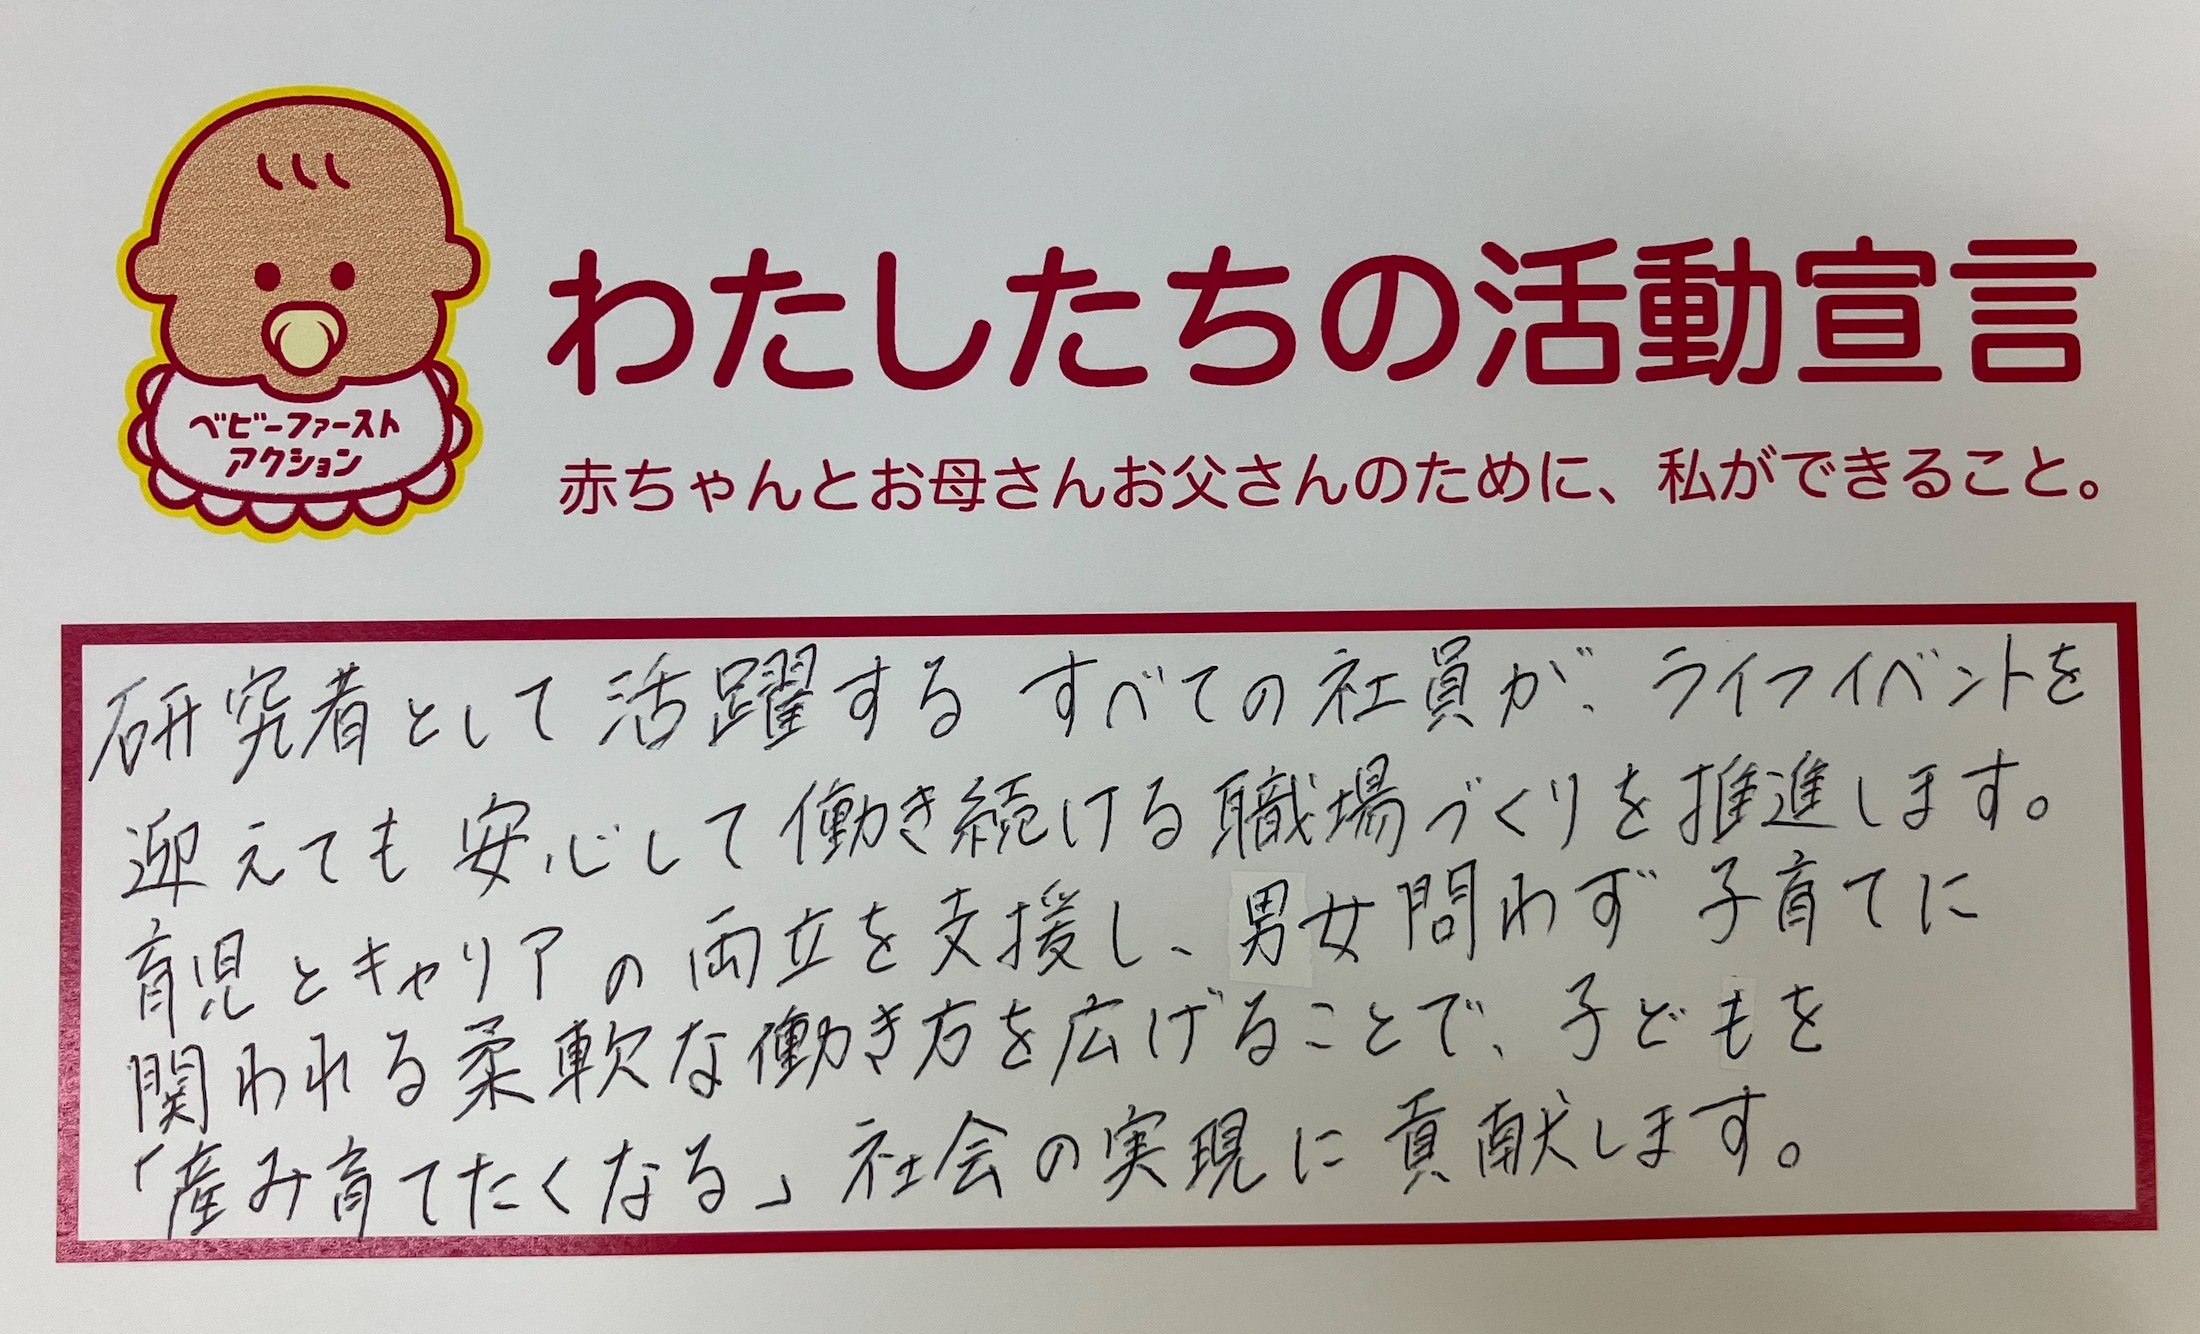 ベビーファースト
アクション
わたしたちの活動宣言
赤ちゃんとお母さんお父さんのために、私ができること。
研究者として活躍する すべての社員が、ライフイベントを
迎えても安心して働き続ける職場づくりを推進します。
育児とキャリアの両立を支援し、男女問わず子育てに
関われる柔軟な働き方を広げることで、子どもを
「産み育てたくなる」社会の実現に貢献します。